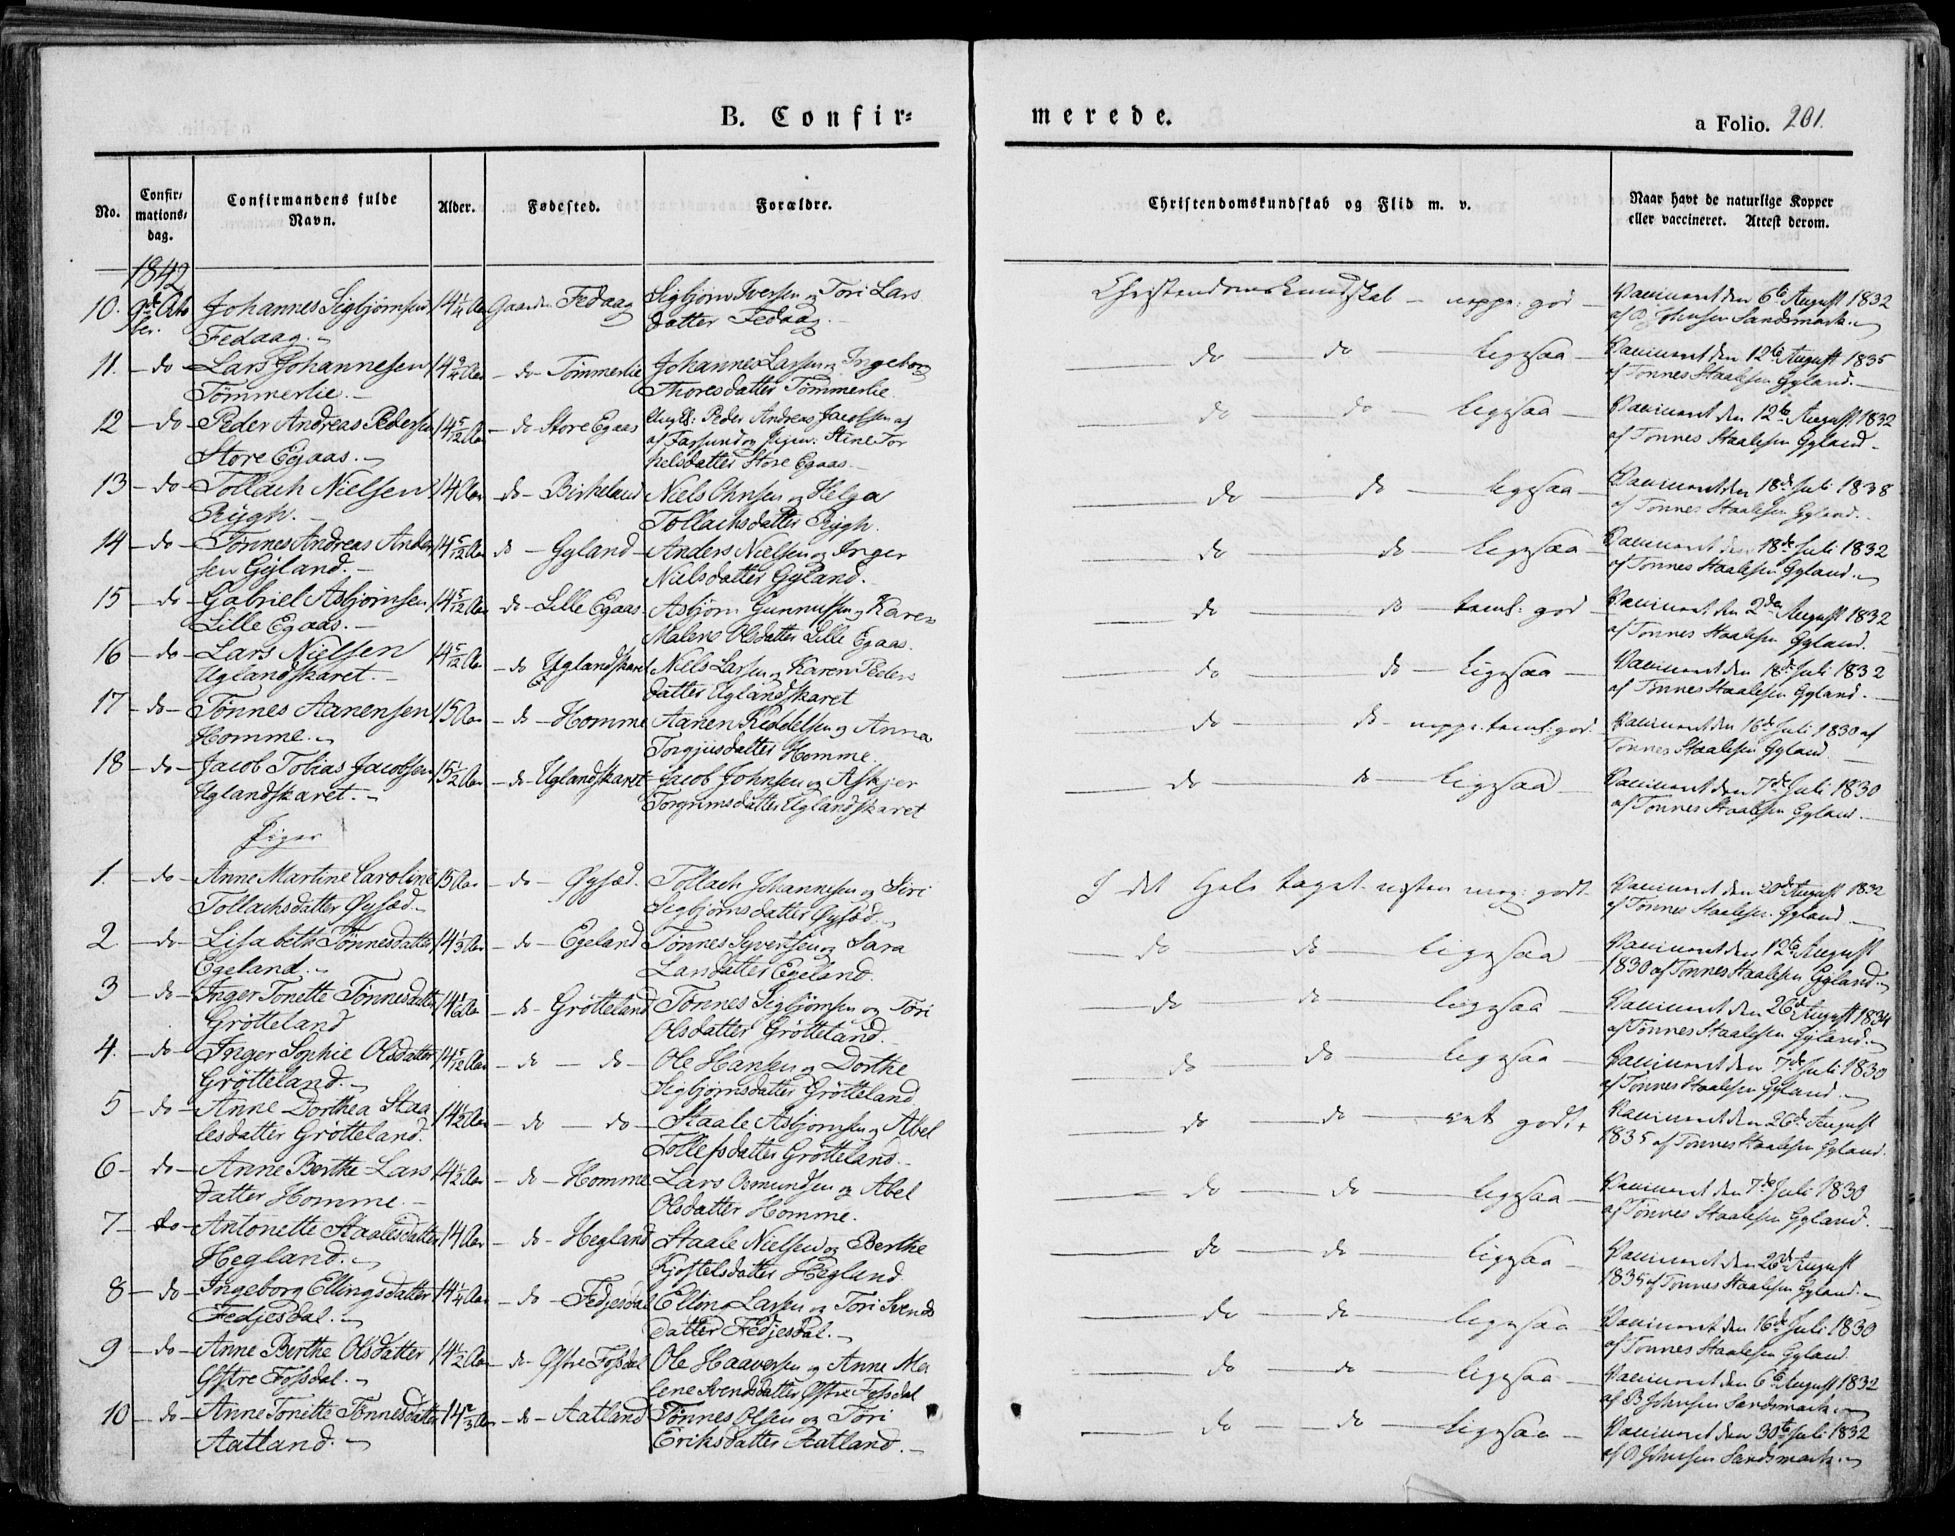 B. Confir=
merede.
a Folio. 201.
No.
Confir=
mations=
dag.
Confirmandens fulde
Navn.
Alder.
Fødested.
Forældre.
Christendomskundskab og Flid m. v.
Naar havt de naturlige Kopper
eller vaccineret. Attest derom.
1842
10. 9de Octo Johannes Sigbjørnsen 14 1/4 Aar Gaarden Fedaag Sigbjørn Iversen og Tori Lars Christendomskundskab - god - Vaccineret den 6te August 1832
ber. Fedaag. datter Fedaag. af B Johnsen Sandsmark.
11. - do - Lars Johannesen 14 3/4 Aar - do - Tømmerlie Johannes Larsen og Ingeborg do do ligesaa - Vaccineret den 12te August 1835
Tømmerlie. Thoresdatter Tømmerlie af Tønnes Staalesen Gyland.
12 - do - Peder Andreas Pedersen 14 5/12 Aar - do Store Egaas Peder Andreas Jacobsen do do ligesaa - Vaccineret den 12te August 1832
Store Egaas. af Farsund og Pigen: Stine Tor af Tønnes Staalesen Gyland -
kelsdatter Store Egaas
13 - do - Tollach Nielsen 14 Aar - do - Birkeland Niels Ohnsen og Helga do do ligesaa - Vaccineret den 18de Juli 1838
Rygh. Tollachsdatter Rygh. af Tønnes Staalesen Gyland.
14 - do - Tønnes Andreas Ander 14 5/12 Aar do - Gyland - Anders Nielsen og Inger do do ligesaa - Vaccineret den 18de Juli 1832
sen Gyland. Nielsdatter Gyland. af Tønnes Staalesen Gyland.
15 - do - Gabriel Asbjørnsen 14 5/12 Aar - do - Lille Egaas Asbjørn Gunnufsen og Karen do do teml: god Vaccineret den 2den August 1832
Lille Egaas. Malene Olsdatter Lille Egaas. af Tønnes Staalesen Gyland.
16 - do - Lars Nielsen 14 5/12 Aar - do Uglandskaret Niels Larsen og Karen Peders do do ligesaa - Vaccineret den 18de Juli 1832
Uglandskaret. datter Uglandskaret af Tønnes Staalesen Gyland.
17 - do - Tønnes Aanensen 15 Aar - do - Homme Aanen Reddelsen og Anna do do neppe teml: god. Vaccineret den 16de Juli 1830 af
Homme. Torgjusdatter Homme Tønnes Staalesen Gyland
18 - do - Jacob Tobias Jacobsen 15 1/2 Aar - do Uglandskaret Jacob Johnsen og Askjer do do ligesaa Vaccineret den 7de Juli 1830
Uglandskaret. Torgrimsdatter Uglandskaret af Tønnes Staalesen Gyland.
Piger
1. - do - Anne Martine Caroline 15 Aar - do - Øysæd. Tollach Johannesen og Siri I det Hele taget næsten meg: godt. Vaccineret den 20de August 1832
Tollachsdatter Øysæd. Sigbjørnsdatter Øysæd. af Tønnes Staalesen Gyland
2 - do - Lisabeth Tønnesdatter 14 1/3 Aar - do - Egeland Tønnes Syvertsen og Sara do do ligesaa - Vaccineret den 12te August
Egeland. Larsdatter Egeland. 1830 af Tønnes Staalesen Gyland.
3 - do - Inger Tonette Tønnesdatter 14 1/6 Aar - do - Grøtteland Tønnes Sigbjørnsen og Tori do do ligesaa - Vaccineret den 26de August 1834
Grøtteland Olsdatter Grøtteland. af Tønnes Staalesen Gyland.
4. - do - Inger Sophie Olsdatter 14 5/12 Aar - do - do - Ole Hansen og Dorthe do do ligesaa - Vaccineret den 7de Juli 1830
Grøtteland. Sigbjørnsdatter Grøtteland af Tønnes Staalesen Gyland.
5 - do - Anne Dorthea Staa 14 1/2 Aar - do - do - Staale Asbjørnsen og Abel do do ret godt. Vaccineret den 26de August
lesdatter Grøtteland. Tollefsdatter Grøtteland. 1835 af Tønnes Staalesen Gyland.
6 - do - Anne Berthe Lars 14 1/2 Aar - do - Homme Lars Osmundsen og Abel do do ligesaa - Vaccineret den 7de Juli 1830
datter Homme. Olsdatter Homme. af Tønnes Staalesen Gyland.
7 - do - Antonette Staalesdatter 14 Aar - do - Hegland Staale Nielsen og Berthe do do ligesaa - Vaccineret den 26de August
Hegland. Kjøstelsdatter Hegland 1835 af Tønnes Staalesen Gyland.
8 - do - Ingeborg Ellingsdatter 14 1/4 Aar - do - Fedjesdal Elling Larsen og Tori Svends do do ligesaa - Vaccineret den 16de Juli 1830
Fedjesdal. datter Fedjesdal. af Tønnes Staalesen Gyland
9 - do - Anne Berthe Olsdatter 14 1/2 Aar - do - Østre Fossdal Ole Haaversen og Anne Ma do do ligesaa - Vaccineret den 6te August 1832
Østre Fossdal. lene Svendsdatter Østre Fossdal af B Johnsen Sandsmark.
10 - do - Anne Tonette Tønnesdatter 14 2/3 Aar - do - Aatland Tønnes Olsen og Tori do do ligesaa - Vaccineret den 30te Juli 1832
Aatland. Eriksdatter Aatland. af B Johnsen Sandsmark.